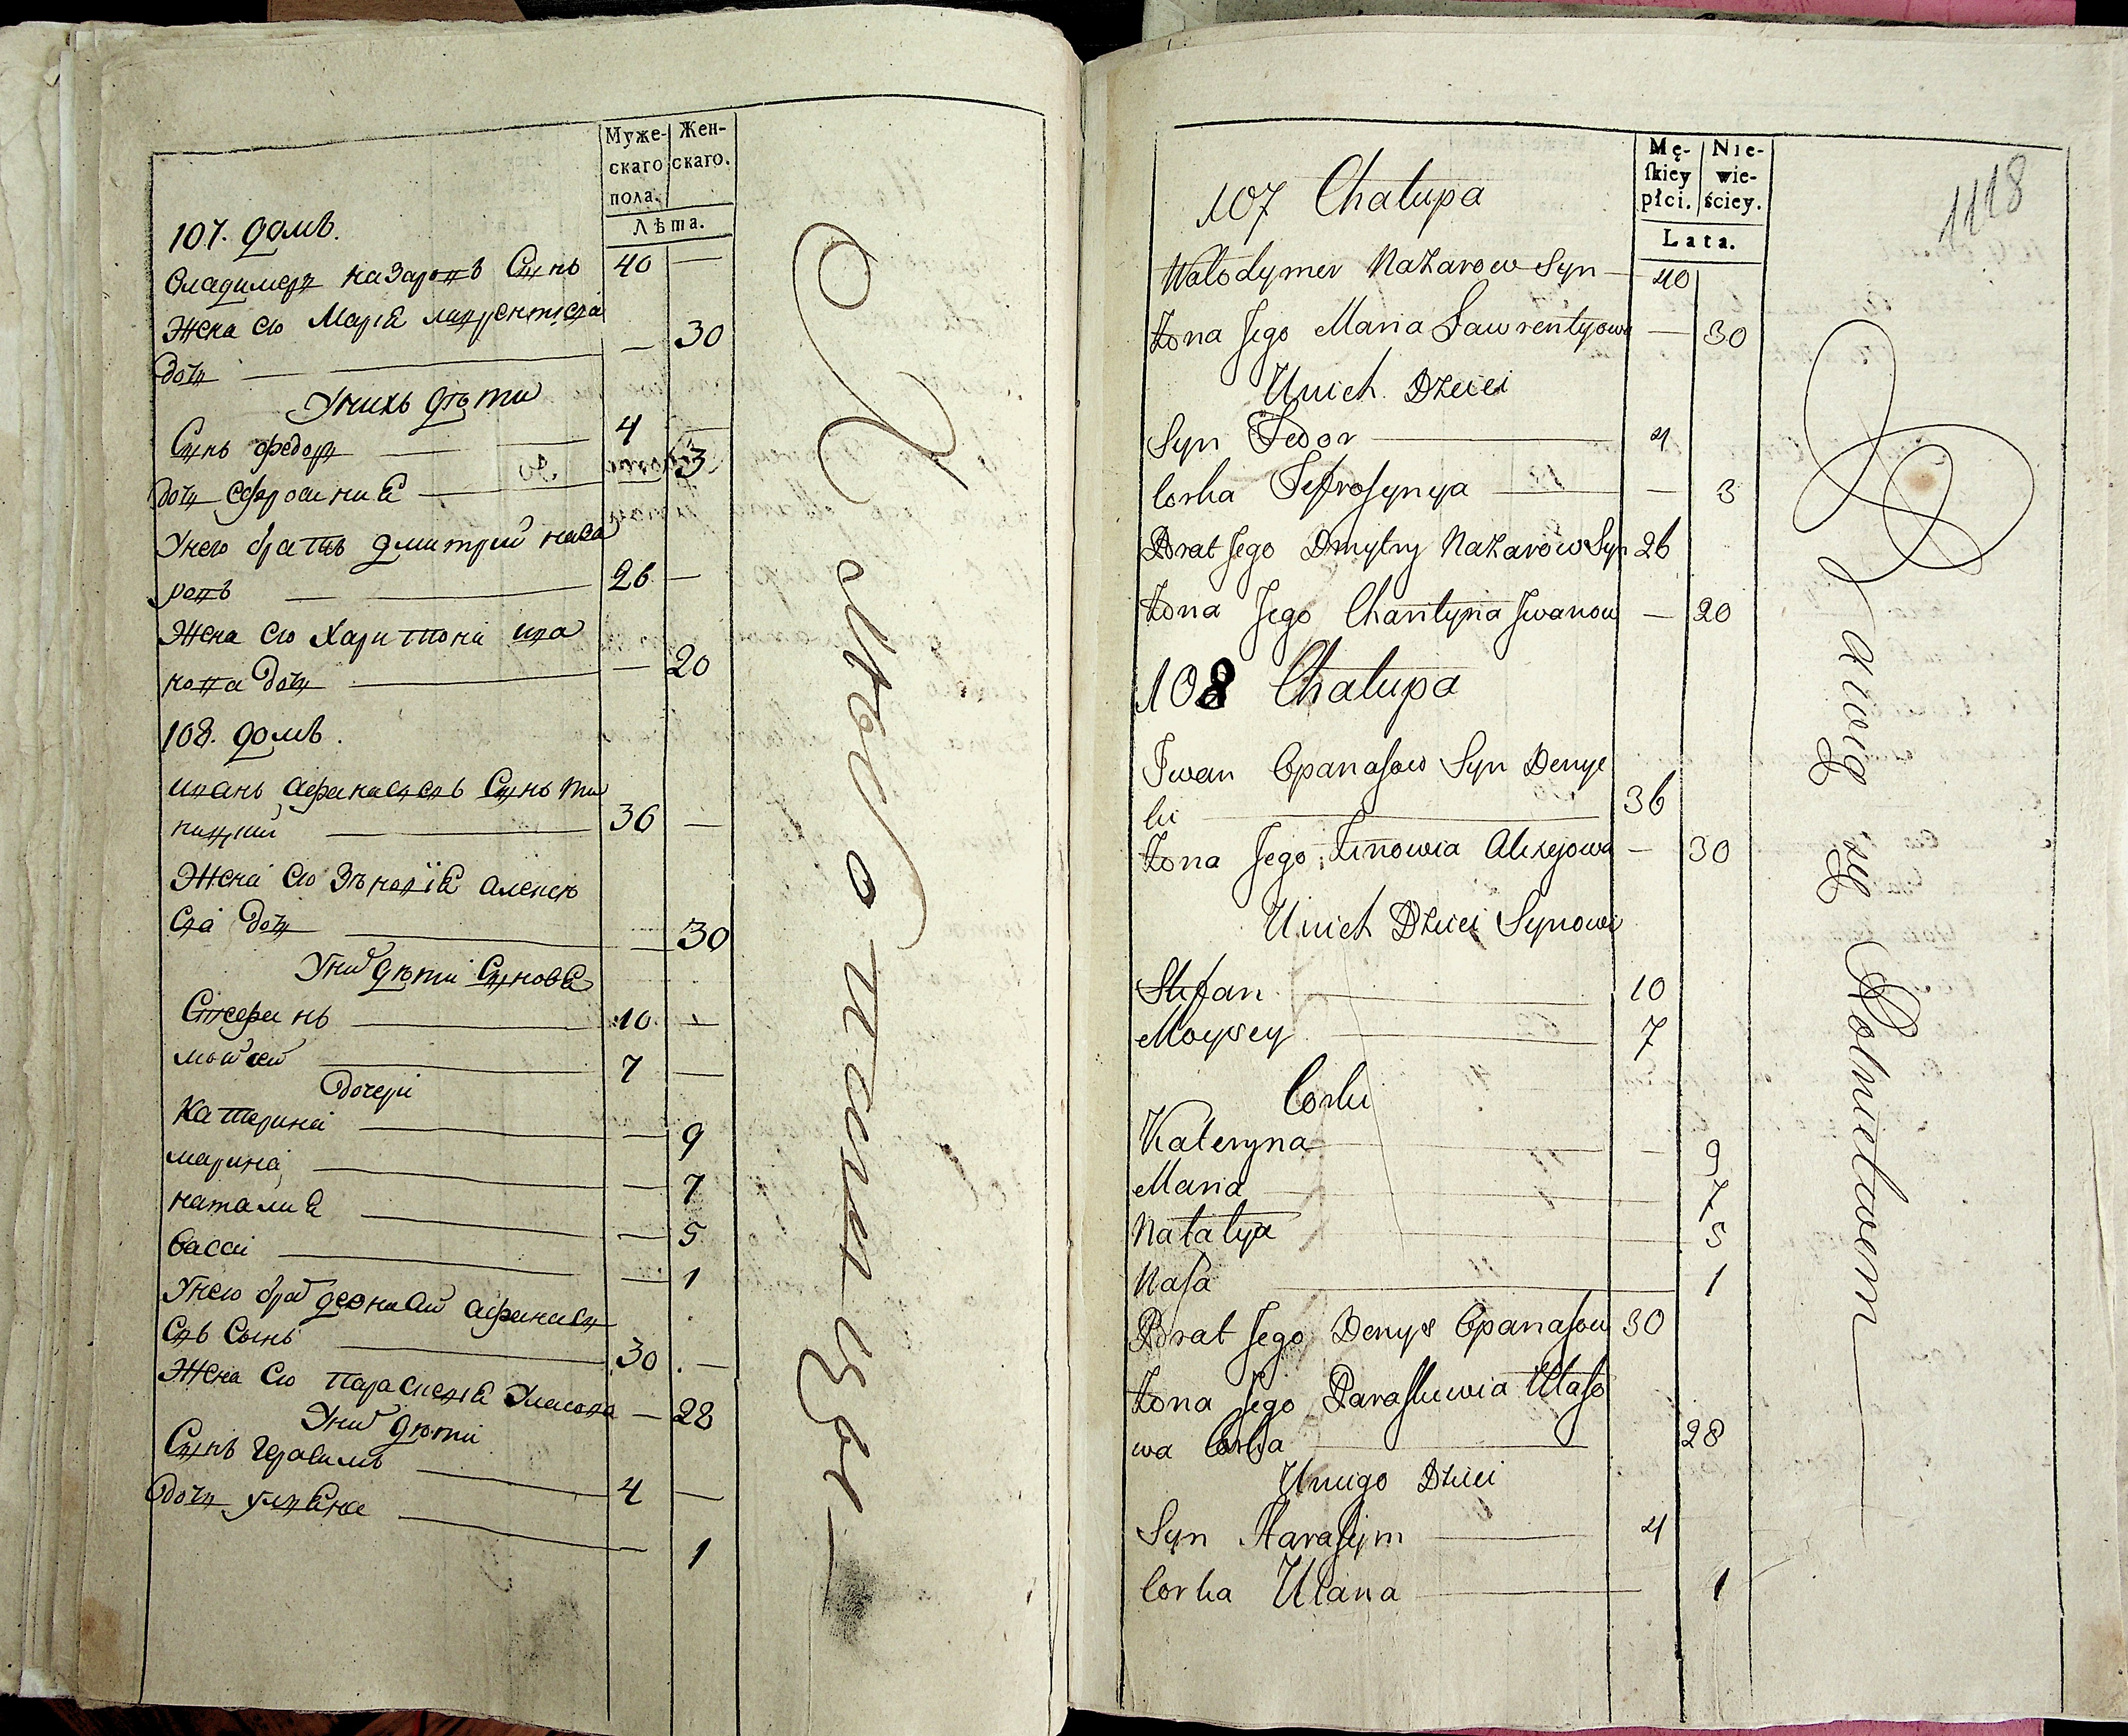 Муже-
скаго
пола.
Жен-
скаго.
Лѣта.
107. домъ.
Владимеръ назаровъ Сынъ 40 —
Жена его Марія лаврентіева
дочь — — 30
У нихъ дѣти
Сынъ федоръ — 4 —
дочь ефросиния — 3
У него братъ дмитрий наза
ровъ — 26 —
Жена его Харитона ива
нова дочь — — 20
108. домъ.
иванъ афанасьевъ Сынъ
36 —
Жена его Зѣновія алексѣ
ева дочь — — 30
У них дѣти Сыновя
Стефанъ — 10 —
мойсей — 7 —
дочери
Катерина — — 9
марина — — 7
наталия — — 5
васса — — 1
У него брат афанась
евъ Сынъ — 30 —
Жена его Параскевія Уласова — 28
У них дѣти
Сынъ герасимъ — 4 —
дочь уляна — — 1
К
Mę-
ſkiey
płci.
Nie-
wie-
ściey.
Lata.
1118
107 Chałupa
Wołodymer Nazarow Syn — 40
Żona Jego Maria Ławrentyowa — 30
U nich Dzieci
Syn Fedor — 4
Corka Jefrosynya — — 3
Brat Jego Dmytry Nazarow Syn 26
Żona Jego Charytyna Iwanow — 20
108 Chałupa
Iwan Opanasow Syn Denyſ
ki — 36
Żona Jego Zinowia Alexejowa — 30
U nich Dzieci Synowie
Stefan — 10
Moysey — 7
Corki
Kateryna — — 9
Maria — 7
Natalya — 5
Waſa — 1
Brat Jego Denys Opanaſow 30
Żona Jego Paraskiewia Ułaſo
wa Corka — 28
U niego Dzieci
Syn Harasym — 4
Corka Ulana — 1